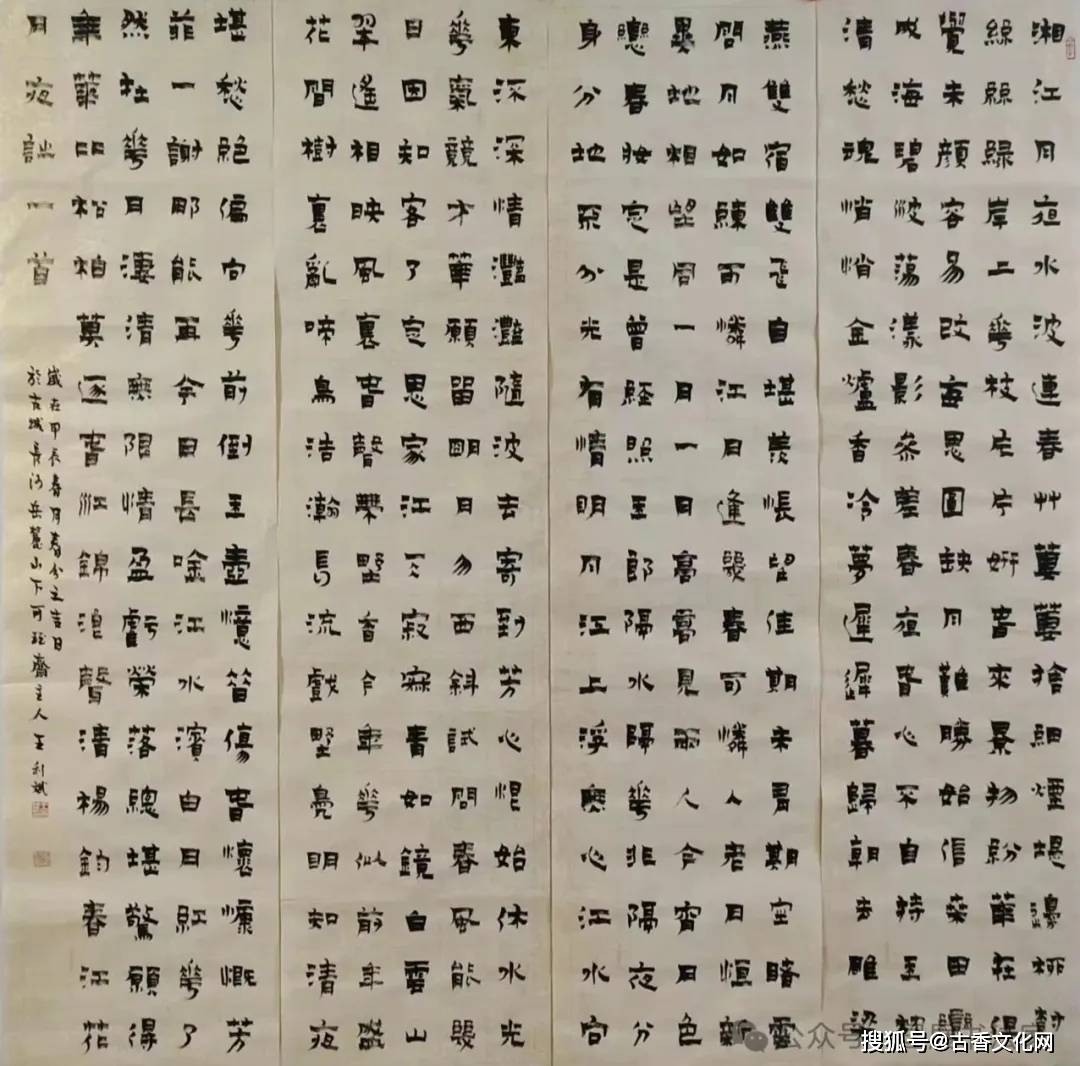 湘江月夜水波連春艸萋萋捨細煙堤邊柳對
絲絲綠岸上花枝片片妍春來景物紛華在得
覺朱顏容易改每思圓缺月難勝始信桑田變
成海碧波蕩漾影參差春夜春心不自持玉
清愁魂悄悄金爐香冷夢遲遲暮歸朝去雕梁
燕雙宿雙飛自堪羨悵望佳期未有期空階露
問月如練可憐江月逢幾春可憐人老月恆新
異地相望同一月一日高高見兩人今宵月色
戀春妝定是曾經照玉郎隔水隔花非隔夜分
身分地不分光有情明月江上浮無心江水向
東深深情灩灩隨波去寄到芳心恨始休水光
花氣競才華願留明日勿西斜試問春風能幾
日因知客了定思家江天寂寞青如鏡白雲山
翠遙相映風裏春聲帶野香今年花似前年豔
花間樹裏亂啼鳥浩瀚馬流戲野鳧明知清夜
堪愁絕偏向花前倒玉壺憶昔傷春懷慷慨芳
菲一謝那能再今日長唫江水濱白日紅花了
然在花月淒清無限情盈虧榮落總堪驚願得
年華比松柏莫逐寒江錦浪聲清楊鈞春江花
月夜詩一首
歲在甲辰春月春分之吉日
於古城長沙岳麓山下可 齋主人王利斌
搜狐号@古香文化网